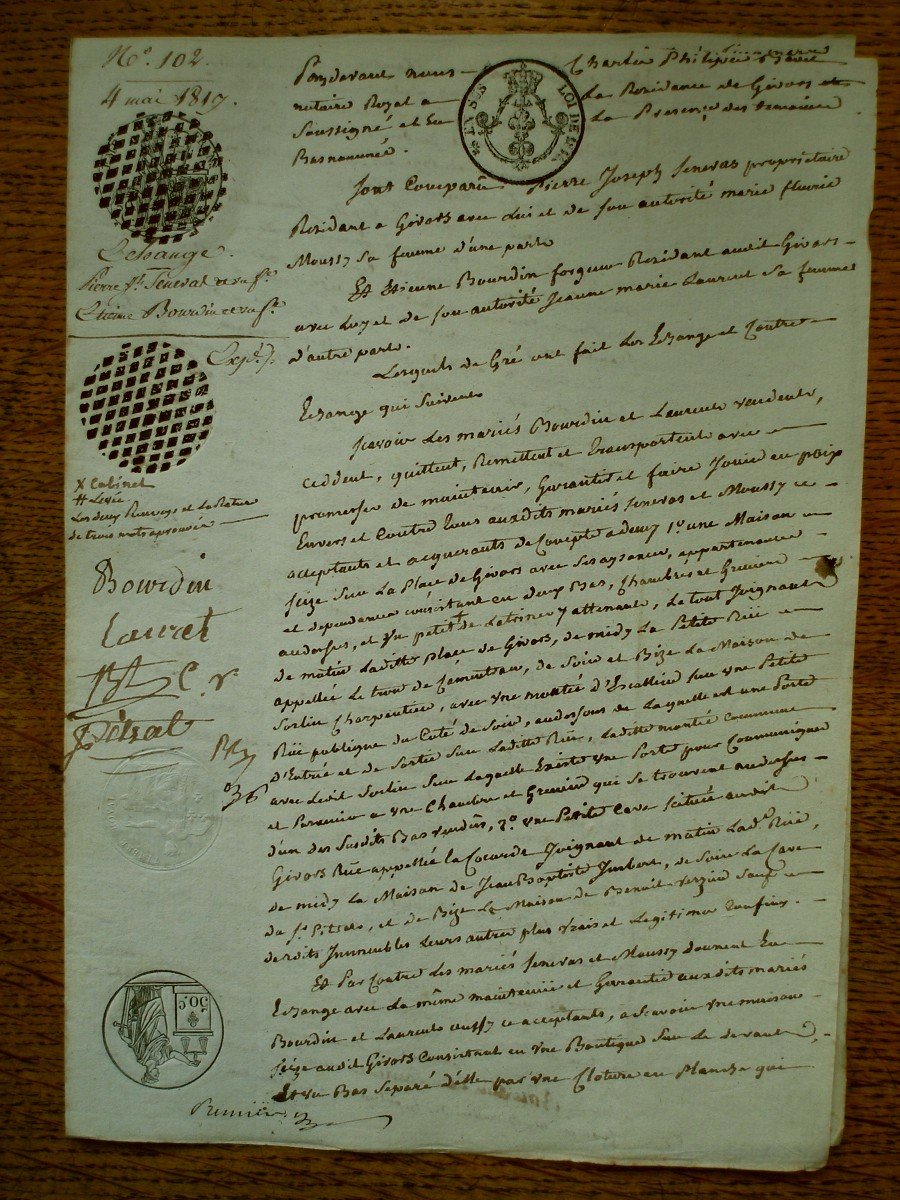 N°. 102.
4 mai 1817.
Echange
Pierre Jh. Seneval et sa fe.
Etienne Bourdin et sa fe.
Expé.
X Cabinet
# Levée
Les deux Renvoys et la Rature
de trois mots aprouvée
Bourdin
Lauret
Pitrat
Pardevant nous Charles Philipe
notaire Royal a La Residance de Givors
Soussigné et En La Presence des temoins
Basnommés.
LOI DE 1816
Sont Comparu Pierre Joseph Senevas propriétaire
Residant a Givors avec Lui et de Son autorité marie fleurie
Moussy Sa femme d'une part
Et Etienne Bourdin forgeur Residant audit Givors
avec Luy et de Son autorité Jeanne marie Laurent Sa femme
d'autre part.
Lesquels de Gré ont fait Les Echange et Contre
Echange qui Suivent
Scavoir Les mariés Bourdin et Laurent vendent,
ceddent, quittent, Remettent et transportent avec
promesse de maintenir, Garantir et faire Jouir en paix
Envers et Contre tous auxdits mariés Senevas et Moussy ce
acceptants et acquerants de Compte a demy 1° une Maison
Seize Sur La Place de Givors avec Ses aysances, appartenances
et dependances consistant en deux Bas, Chambres et Grenier
audessus, et un petit Latrines y attenante, Le tout Joignant
de matin Laditte Place de Givors, de midy La Petite Rüe
appellée Le trou de, de Soir et Bize La Maison de
Sorlin Charpentier, avec Une montée d'Escallier Sur Une Petite
Rüe publique du Coté de Soir, audessous de Laquelle est une Porte
d'Entrée et de Sortie Sur Laditte Rüe, Laditte montée commune
avec Ledit Sorlin Sur Laquelle Existe Une Porte pour Communiquer
et Parvenir a Une Chambre et Grenier qui Se trouvent audessus
d'un des Susdits Bas vendus, 2° Une Petite Cave Scituée audit
Givors Rüe appellée la Cocarde Joignant de matin Lade. Rüe,
de midy La Maison de Jean Baptiste Imbert, de Soir La Cave
du Sr. Pitrat, et de Bize La Maison de Benoit Sauf
de droits Immeubles Leurs autres plus Vrais et Legitimes Confins.
Et Par Contre Les mariés Senevas et Moussy donnent En
Echange avec La même maintenue et Garantie auxdits mariés
Bourdin et Laurent aussy ce acceptants, a Scavoir Une maison
Seize audit Givors Consistant en Une Boutique Sur Le devant
Et un Bas Separé d'elle par Une Cloture en Planche qui
50 C.
Premier